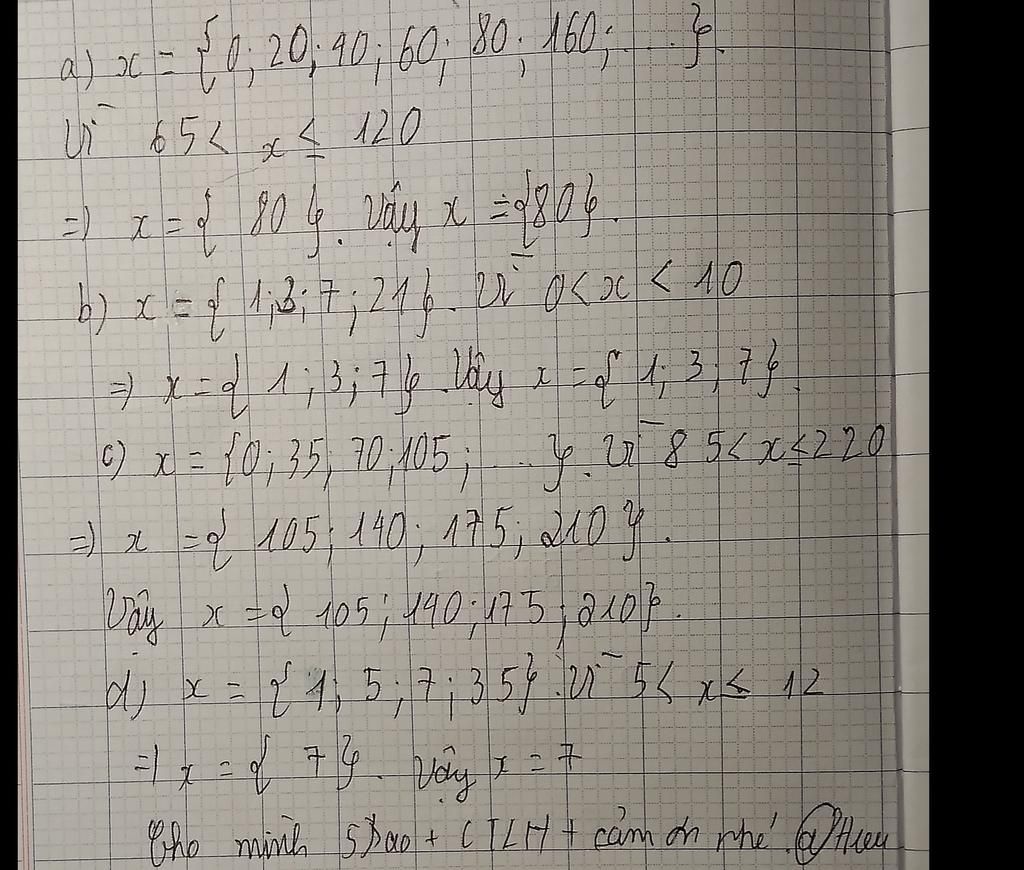 a) x = {0; 20; 40; 60; 80; 160; .... }.
Vì 65 < x ≤ 120
=) x = { 80 }. Vậy x = {80}.
b) x = { 1; 3; 7; 21}. Vì 0 < x < 10
=) x = { 1; 3; 7}. Vậy x = { 1; 3; 7}.
c) x = {0; 35; 70; 105; .... }. Vì 85 < x ≤ 220
=) x = { 105; 140; 175; 210 }.
Vậy x = { 105; 140; 175; 210}.
d) x = { 1; 5; 7; 35}. Vì 5 < x ≤ 12
=) x = { 7 }. Vậy x = 7
Cho mình 5 sao + CTLH + cảm ơn nhé. @Hieu